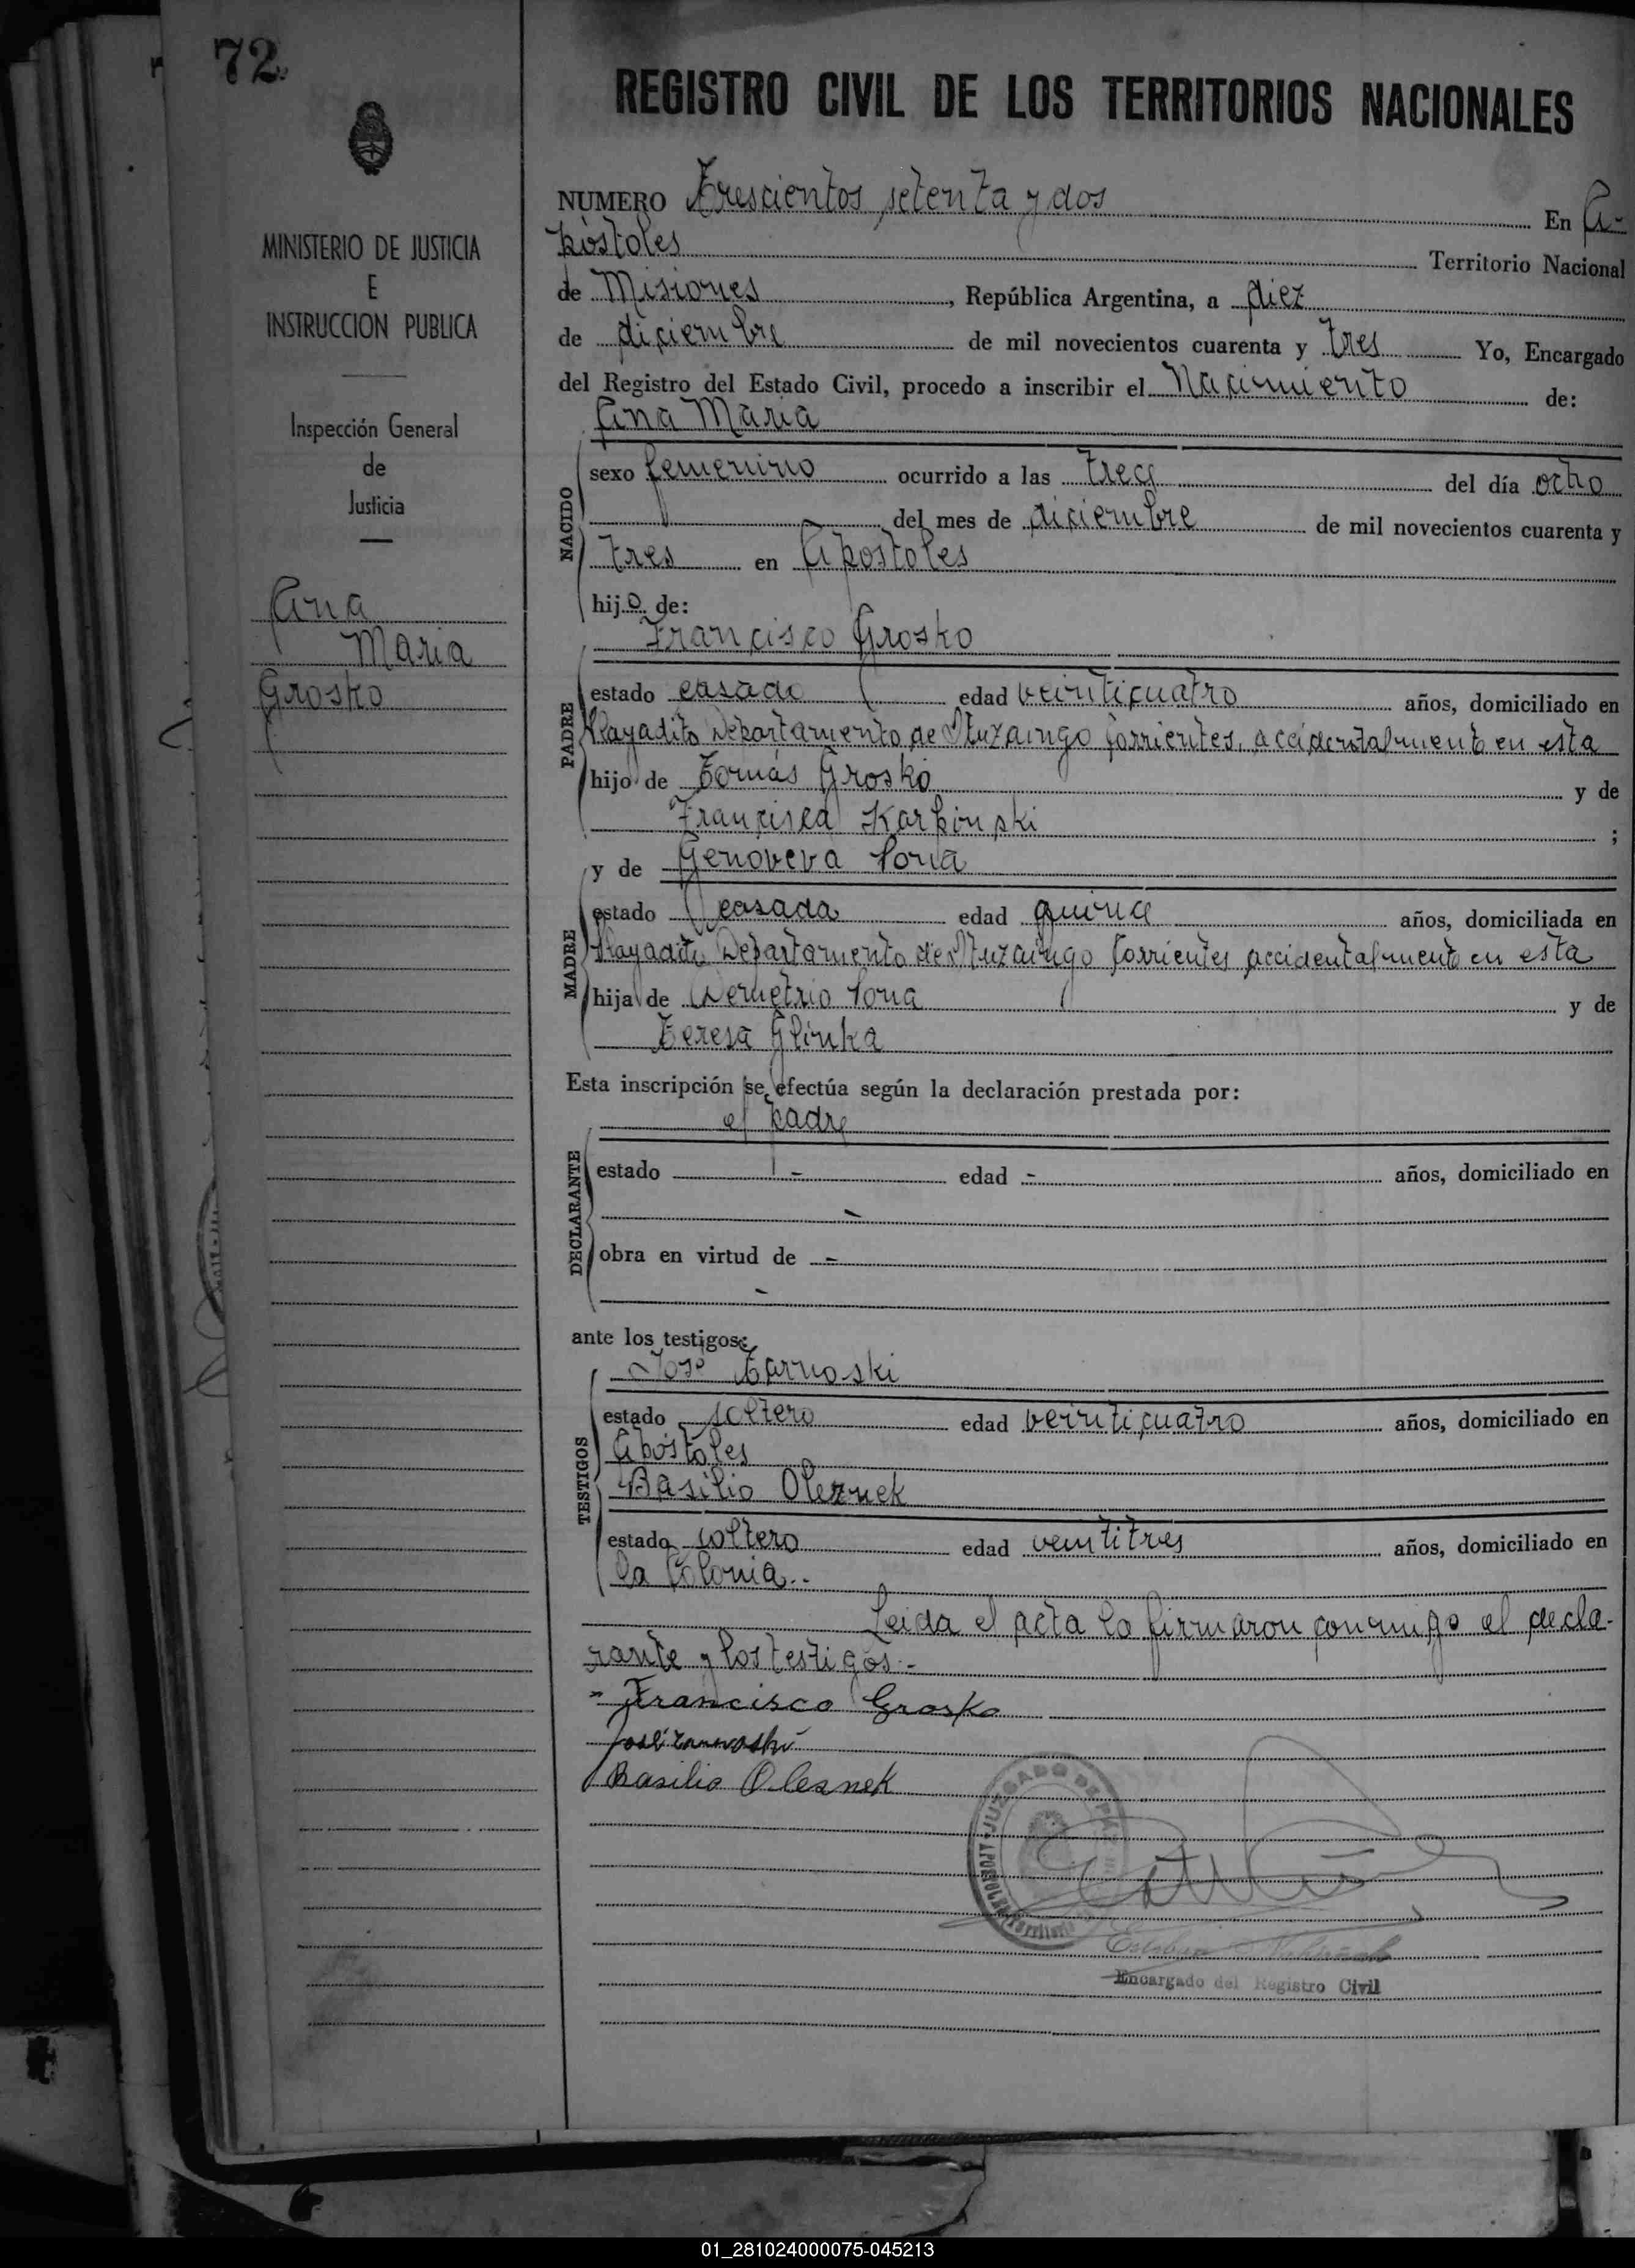 72
REGISTRO CIVIL DE LOS TERRITORIOS NACIONALES
MINISTERIO DE JUSTICIA
E
INSTRUCCION PUBLICA
Inspección General
de
Justicia
Ana
Maria
Grosko
NUMERO Trescientos setenta y dos En A-
póstoles Territorio Nacional
de Misiones, República Argentina, a diez
de diciembre de mil novecientos cuarenta y tres Yo, Encargado
del Registro del Estado Civil, procedo a inscribir el Nacimiento de:
Ana Maria
NACIDO
sexo femenino ocurrido a las trece del día ocho
del mes de diciembre de mil novecientos cuarenta y
tres en Apostoles
hijo de:
Francisco Grosko
PADRE
estado casado edad veinticuatro años, domiciliado en
Playadito Departamento de Ituzaingo Corrientes, accidentalmente en esta
hijo de Tomás Grosko y de
Francisca Karpinski ;
y de Genoveva Soria
MADRE
estado casada edad quince años, domiciliada en
Playadito Departamento de Ituzaingo Corrientes accidentalmente en esta
hija de Demetrio Soria y de
Teresa Glinka
Esta inscripción se efectúa según la declaración prestada por:
el padre
DECLARANTE
estado - edad - años, domiciliado en
-
obra en virtud de -
-
ante los testigos:
José Tarnoski
TESTIGOS
estado soltero edad veinticuatro años, domiciliado en
Apóstoles
Basilio Oleznek
estado soltero edad veintitres años, domiciliado en
la Colonia..
Leida el acta la firmaron conmigo el decla-
rante y los testigos.-
Francisco Grosko
José Tarnoski
Basilio Oleznek
JUZGADO DE PAZ
APOSTOLES
Esteban
Encargado del Registro Civil
01_281024000075-045213